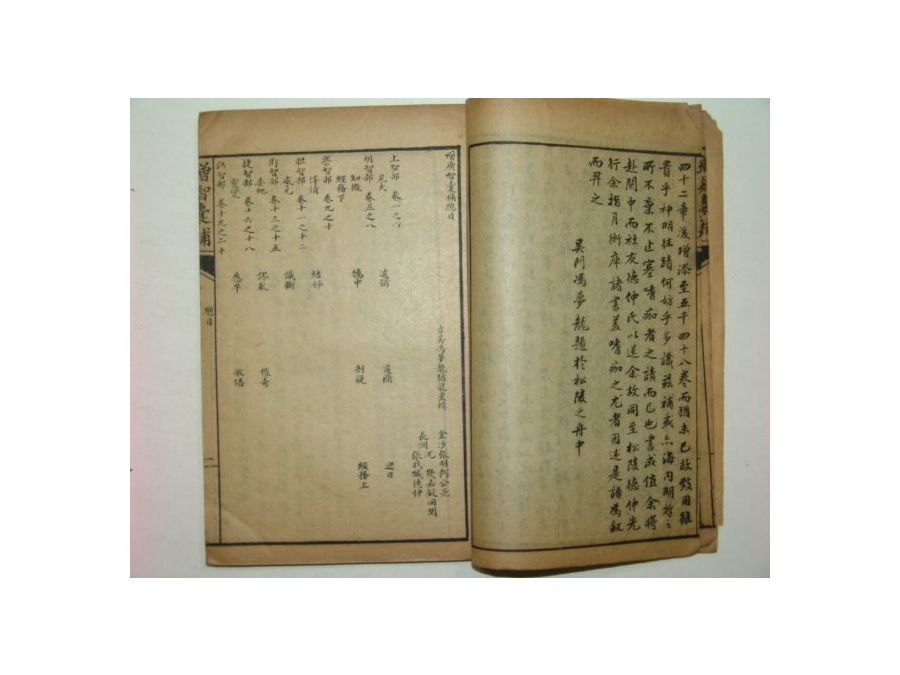 四十二章後增添至五千四十八卷而猶未已故致用雖
貴乎神明往蹟何妨乎多識茲補或亦海內明哲之
所不棄不止塞嗜痂者之請而已也書成值余將
赴閩中而社友德仲氏以送余故同至松陵德仲先
行余指月術庫諸書蓋嗜痂之尤者因述是語為叙
而畀之
吳門馮夢龍題於松陵之舟中
增廣智囊補總目
古吳馮夢龍猶龍重輯
金沙張明弼公亮
長洲沈幾去疑同閱
張我城德仲
上智部 卷一之四
見大 遠猶 通簡 迎刃
明智部 卷五之八
知微 億中 剖疑 經務上
經務下
察智部 卷九之十
得情 詰奸
膽智部 卷十一之十二
威克 識斷
術智部 卷十三之十五
委蛇 謬數 權奇
捷智部 卷十六之十八
靈變 應卒 敏悟
語智部 卷十九之二十
增智囊補
總目